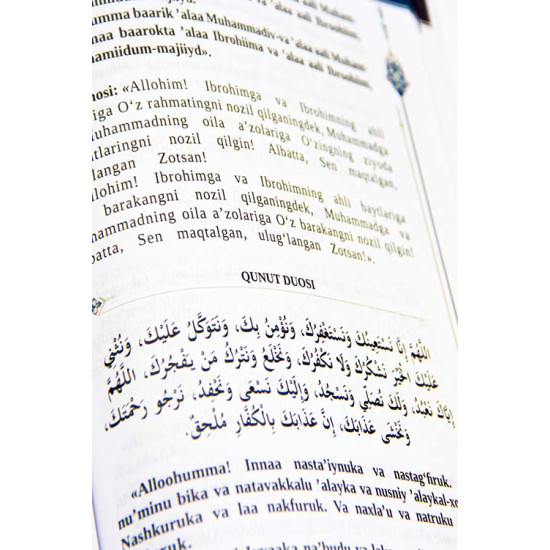 amma baarik ’alaa Muhammadiv-va ’alaa aali Muham-
maa baarokta ’alaa Ibrohiima va ’alaa aali Ibroohiim,
hamiidum-majiyd».
nosi: «Allohim! Ibrohimga va Ibrohimning ahli
riga O‘z rahmatingni nozil qilganingdek, Muhammadga
Muhammadning oila a’zolariga O‘zingning ziyoda
atlaringni nozil qilgin! Albatta, Sen maqtalgan,
langan Zotsan!
llohim! Ibrohimga va Ibrohimning ahli baytlariga
barakangni nozil qilganingdek, Muhammadga va
hammadning oila a’zolariga O‘z barakangni nozil qilgin!
batta, Sen maqtalgan, ulug‘langan Zotsan!».
QUNUT DUOSI
اللَّهُمَّ إِنَّا نَسْتَعِينُكَ وَنَسْتَغْفِرُكَ، وَنُؤْمِنُ بِكَ، وَنَتَوَكَّلُ عَلَيْكَ، وَنُثْنِي
عَلَيْكَ الْخَيْرَ نَشْكُرُكَ وَلَا نَكْفُرُكَ، وَنَخْلَعُ وَنَتْرُكُ مَنْ يَفْجُرُكَ، اللَّهُمَّ
إِيَّاكَ نَعْبُدُ، وَلَكَ نُصَلِّي وَنَسْجُدُ، وَإِلَيْكَ نَسْعَى وَنَحْفِدُ، نَرْجُو رَحْمَتَكَ،
وَنَخْشَى عَذَابَكَ، إِنَّ عَذَابَكَ بِالْكُفَّارِ مُلْحِقٌ.
«Alloohumma! Innaa nasta’iynuka va nastag‘firuk.
nu’minu bika va natavakkalu ’alayka va nusniy ’alaykal-xo
Nashkuruka va laa nakfuruk. Va naxla’u va natruku